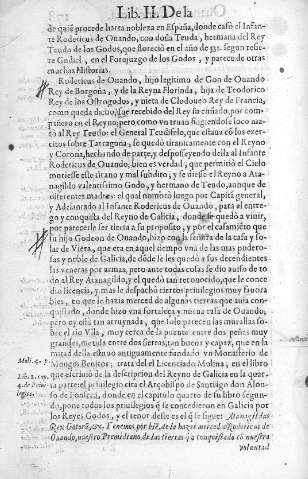 Lib. II. De la
de quiẽ procede harta nobleza en España, donde casó el Infan-
te Rodericus de Ouando, con doña Teuda, hermana del Rey
Teuda de los Godos, que floreció en el año de 535. segun refie-
re Gudiel, en el Forojuzgo de los Godos, y parece de otras
muchas Historias.
Rodericus de Ouando, hijo legitimo de Gon de Ouando
Rey de Borgoña, y de la Reyna Florinda, hija de Teodorico
Rey de los Ostrogodos, y nieta de Clodoueo Rey de Francia,
como queda dicho, fue recebido del Rey su cuñado, por com-
pañero en el Reyno: pero como vn truan fingiendose loco ma-
tasse al Rey Teudo: el General Teudiselo, que estaua cõ los exer-
citos sobre Tarragona, se quedò tiranicamente con el Reyno
y Corona, hechando de parte, y desposeyendo della al Infante
Rodericus de Ouando, bien es verdad, que permitiò el Cielo
muriesse este tirano y mal subdito, y se diesse el Reyno a Ata-
nagildo valentissimo Godo, y hermano de Teudo, aunque de
diferentes madres: el qual nombrò luego por Capitã general,
y Adelantado al Infante Rodericus de Ouando, para el entre-
go y conquista del Reyno de Galicia, donde se quedò a viuir,
por parecerle ser tierra a su proposito, y por el casamiẽto que
su hija Godeon de Ouando, hizo con la señora de la casa y so-
lar de Vieta, que era en aquel tiempo vna de las mas podero-
sas y noble de Galicia, de dõde le les quedò a sus decendientes
las veneras por armas, pero ante todas cosas se dio auiso de to-
do al Rey Atanagildo, y el quedò tan reconocido, que le conce-
dio licencia, y mas le despachò ciertos priuilegios muy fauora
bles, en que le hazia merced de algunas tierras que auia con-
quistado, donde hizo vna fortaleza y nueua casa de Ouando,
pero oy està tan arruynada, que solo parecen las murallas so-
bre el rio Vlla, muy cerca de la puente entre dos peñas muy
grandes, metida entre dos sierras, tan bueno y capaz, que en la
mitad della
Monges Benitos, trata del el Licenciado Molina, en el libro
que escriuiò de la descripcion del Reyno de Galicia en la quar-
ta parte: el priuilegio cita el Arçobispo de Santiago don Alon-
so de Fonseca, donde en el capitulo quarto de su libro segun-
do, pone todos los priuilegios q̃ se concedieron en Galicia por
los Reyes Godos, y el tenor deste es el q̃ se sigue: Atanagildus
Rex Gotorũ, &c. Tenemos por biẽ, de le hazer merced a Rodericus de
Ouando, nuestro de las tierras q̃ a conquistado cõ nuestra
voluntad
Moli. 4. p.
Lib. 2. cap.
4. de Priui-
legios.